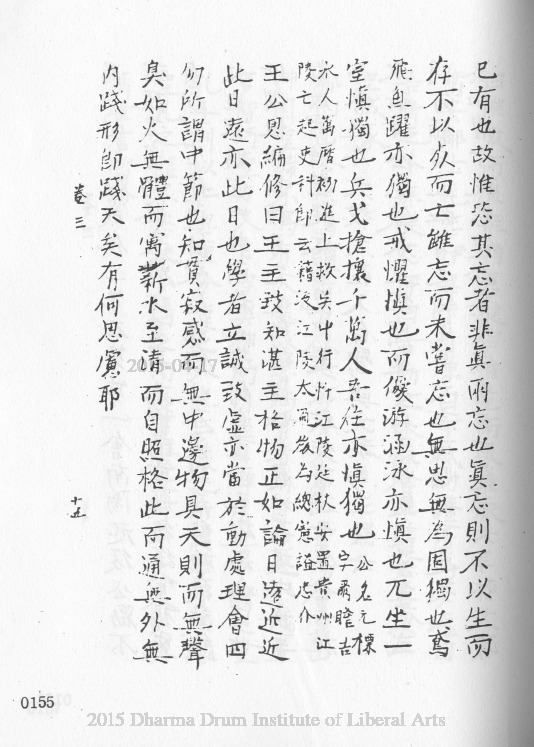 已有也故惟恐其忘者非真兩忘也真忘則不以生而
存不以歿而亡雖忘而未嘗忘也無思無為固獨也鳶
飛魚躍亦獨也戒懼慎也而優游涵泳亦慎也兀坐一
室慎獨也兵戈搶攘千萬人吾往亦慎獨也公名元標字爾瞻吉
水人萬曆初進士救吳中行忤江陵廷杖安置貴州江
陵亡起吏科郎云藉江陵太過後為總憲謚忠介
王公思編修曰王主致知湛主格物正如論日遠近近
此日遠亦此日也學者立誠致虛亦當於動處理會四
勿所謂中節也知貫寂感而無中邊物具天則而無聲
臭如火無體而寓薪水至清而自照格此而通無外無
內踐形即踐天矣有何思慮耶
卷三
十五
0155
2015 Dharma Drum Institute of Liberal Arts